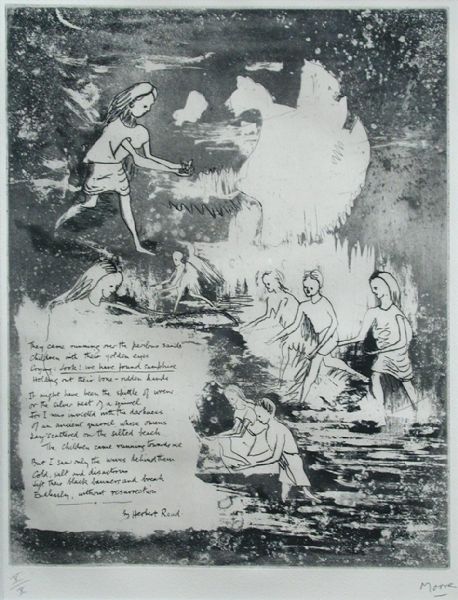 They came running over the perilous sands
Children with their golden eyes
Crying: Look! we have found samphire
Holding out their bone-ridden hands
It might have been the spittle of wrens
or the silver nest of a squirrel
For I was invested with the darkness
of an ancient quarrel whose omens
Lay scattered on the silted beach
The children came running towards me
But I saw only the waves behind them
Cold, salt and disastrous
Lift their black banners and break
Endlessly, without resurrection
by Herbert Read
Moore